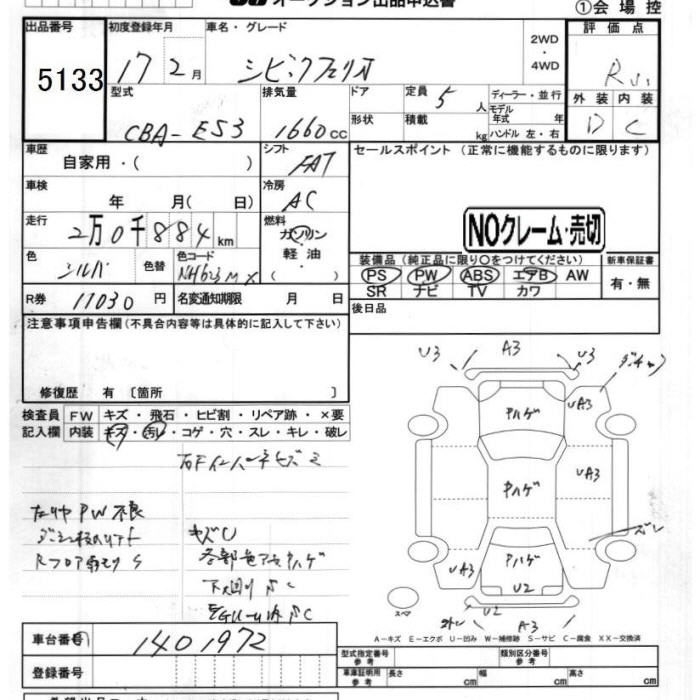 オークション出品申込書
①会場控
出品番号 5133
初度登録年月 17 2月
車名・グレード シビックフェリオ
2WD・4WD
評価点 R
外装 D 内装 C
型式 CBA-ES3
排気量 1660cc
ドア形状
定員 5人
積載 kg
ディーラー・並行
モデル年式 年
ハンドル 左・右
車歴 自家用・( )
シフト FAT
セールスポイント(正常に機能するものに限ります)
車検 年 月( 日)
冷房 AC
NOクレーム・売切
走行 2万0千884km
燃料 ガソリン 軽油・( )
色 シルバ 色替
色コード NH623M
装備品(純正品に限り○をつけてください)
PS PW ABS エアB AW
SR ナビ TV カワ
新車保証書 有・無
R券 11030円
名変通知期限 月 日
後日品
注意事項申告欄(不具合内容等は具体的に記入して下さい)
修復歴 有〔箇所 〕
検査員記入欄
FW キズ・飛石・ヒビ割・リペア跡・×要
内装 キズ・汚レ・コゲ・穴・スレ・キレ・破レ
PW不良
キズU
各部色アセ ハゲ
下回り
U3 A3 U3
UA3
ハゲ
ハゲ UA3
ズレ
ハゲ
UA3 U2
スペア
U2 A3
A-キズ E-エクボ U-凹み W-補修跡 S-サビ C-腐食 XX-交換済
車台番号 1401972
登録番号
型式指定番号 参考
類別区分番号 参考
車庫証明用 参考 長さ cm 幅 cm 高さ cm